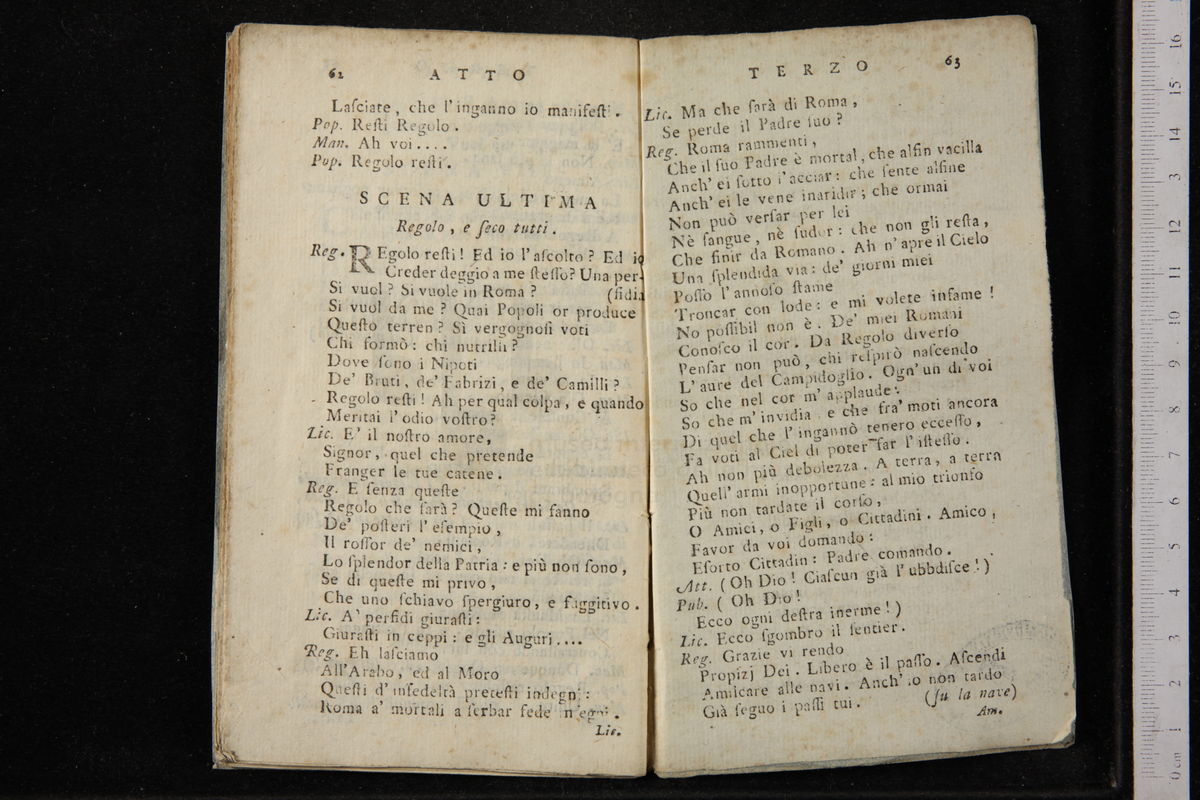 62 ATTO
Laſciate, che l'inganno io manifeſti.
Pop. Reſti Regolo.
Man. Ah voi....
Pop. Regolo reſti.
SCENA ULTIMA
Regolo, e ſeco tutti.
Reg. REgolo reſti! Ed io l'aſcolto? Ed io
Creder deggio a me ſteſſo? Una per-
Si vuol? Si vuole in Roma? (fidia
Si vuol da me? Quai Popoli or produce
Queſto terren? Sì vergognoſi voti
Chi formò: chi nutrilli?
Dove ſono i Nipoti
De' Bruti, de' Fabrizi, e de' Camilli?
Regolo reſti! Ah per qual colpa, e quando
Meritai l'odio voſtro?
Lic. E' il noſtro amore,
Signor, quel che pretende
Franger le tue catene.
Reg. E ſenza queſte
Regolo che ſarà? Queſte mi fanno
De' poſteri l'eſempio,
Il roſſor de' nemici,
Lo ſplendor della Patria: e più non ſono,
Se di queſte mi privo,
Che uno ſchiavo ſpergiuro, e fuggitivo.
Lic. A' perfidi giuraſti:
Giuraſti in ceppi: e gli Auguri....
Reg. Eh laſciamo
All'Arabo, ed al Moro
Queſti d'infedeltà preteſti indegni:
Roma a' mortali a ſerbar fede n'egni.
Lic.
TERZO 63
Lic. Ma che ſarà di Roma,
Se perde il Padre ſuo?
Reg. Roma rammenti,
Che il ſuo Padre è mortal, che alfin vacilla
Anch' ei ſotto l'acciar: che ſente alfine
Anch' ei le vene inaridir; che ormai
Non può verſar per lei
Nè ſangue, nè ſudor: che non gli reſta,
Che finir da Romano. Ah n'apre il Cielo
Una ſplendida via: de' giorni miei
Poſſo l'annoſo ſtame
Troncar con lode: e mi volete infame!
No poſſibil non è. De' miei Romani
Conoſco il cor. Da Regolo diverſo
Penſar non può, chi reſpirò naſcendo
L'aure del Campidoglio. Ogn'un di voi
So che nel cor m'applaude:
So che m'invidia, e che fra' moti ancora
Di quel che l'ingannò tenero ecceſſo,
Fa voti al Ciel di poter far l'iſteſſo.
Ah non più debolezza. A terra, a terra
Quell'armi inopportune: al mio trionfo
Più non tardate il corſo,
O Amici, o Figli, o Cittadini. Amico,
Favor da voi domando:
Eſorto Cittadin: Padre comando.
Att. (Oh Dio! Ciaſcun già l'ubbdiſce!)
Pub. (Oh Dio!
Ecco ogni deſtra inerme!)
Lic. Ecco ſgombro il ſentier.
Reg. Grazie vi rendo
Propizj Dei. Libero è il paſſo. Aſcendi
Amilcare alle navi. Anch'io non tardo
Già ſeguo i paſſi tui. (ſu la nave)
Am.
16
15
14
13
12
11
10
9
8
7
6
5
4
3
2
1
0 cm